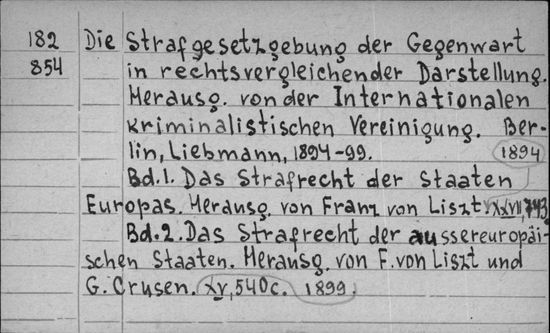 182 Die Strafgesetzgebung der Gegenwart
854 in rechtsvergleichender Darstellung.
Herausg. von der Internationalen
Kriminalistischen Vereinigung. Ber-
lin, Liebmann, 1894-99. 1894
Bd.1. Das Strafrecht der Staaten
Europas. Herausg. von Franz von Liszt. XXVII 743
Bd.2. Das Strafrecht der aussereuropäi-
schen Staaten. Herausg. von F. von Liszt und
G. Crusen. XV, 540c. 1899.